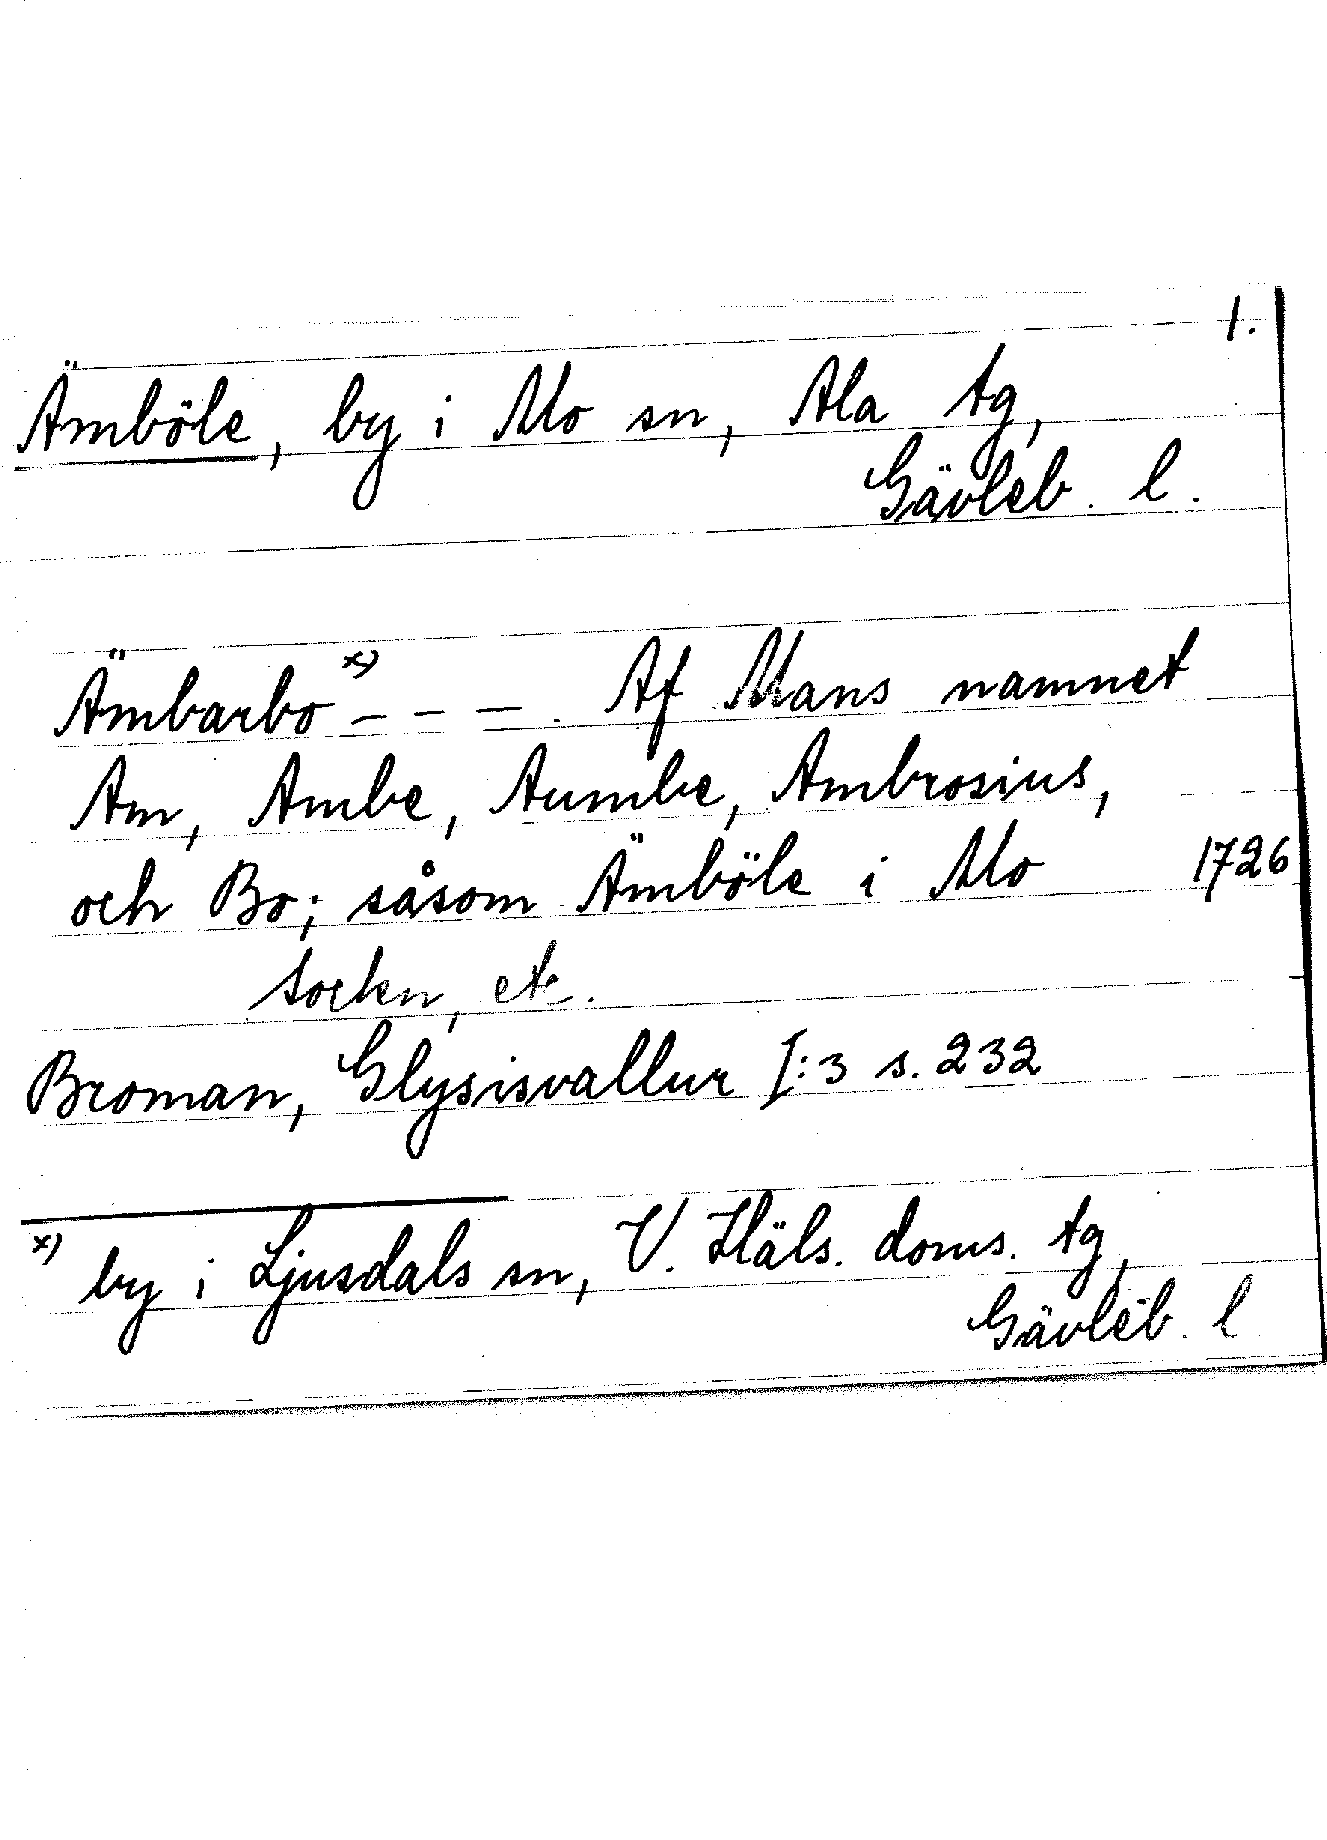 1.
Ämböle, by i Mo sn, Ala tg,
Gävleb. l.
Ämbarbo x) – – –. Af Mans namnet
Am, Ambe, Aumbe, Ambrosius,
och Bo; såsom Ämböle i Mo 1726
Sockn, etc.
Broman, Glysisvallur I:3 s. 232
x) by i Ljusdals sn, V. Häls. doms. tg,
Gävleb. l